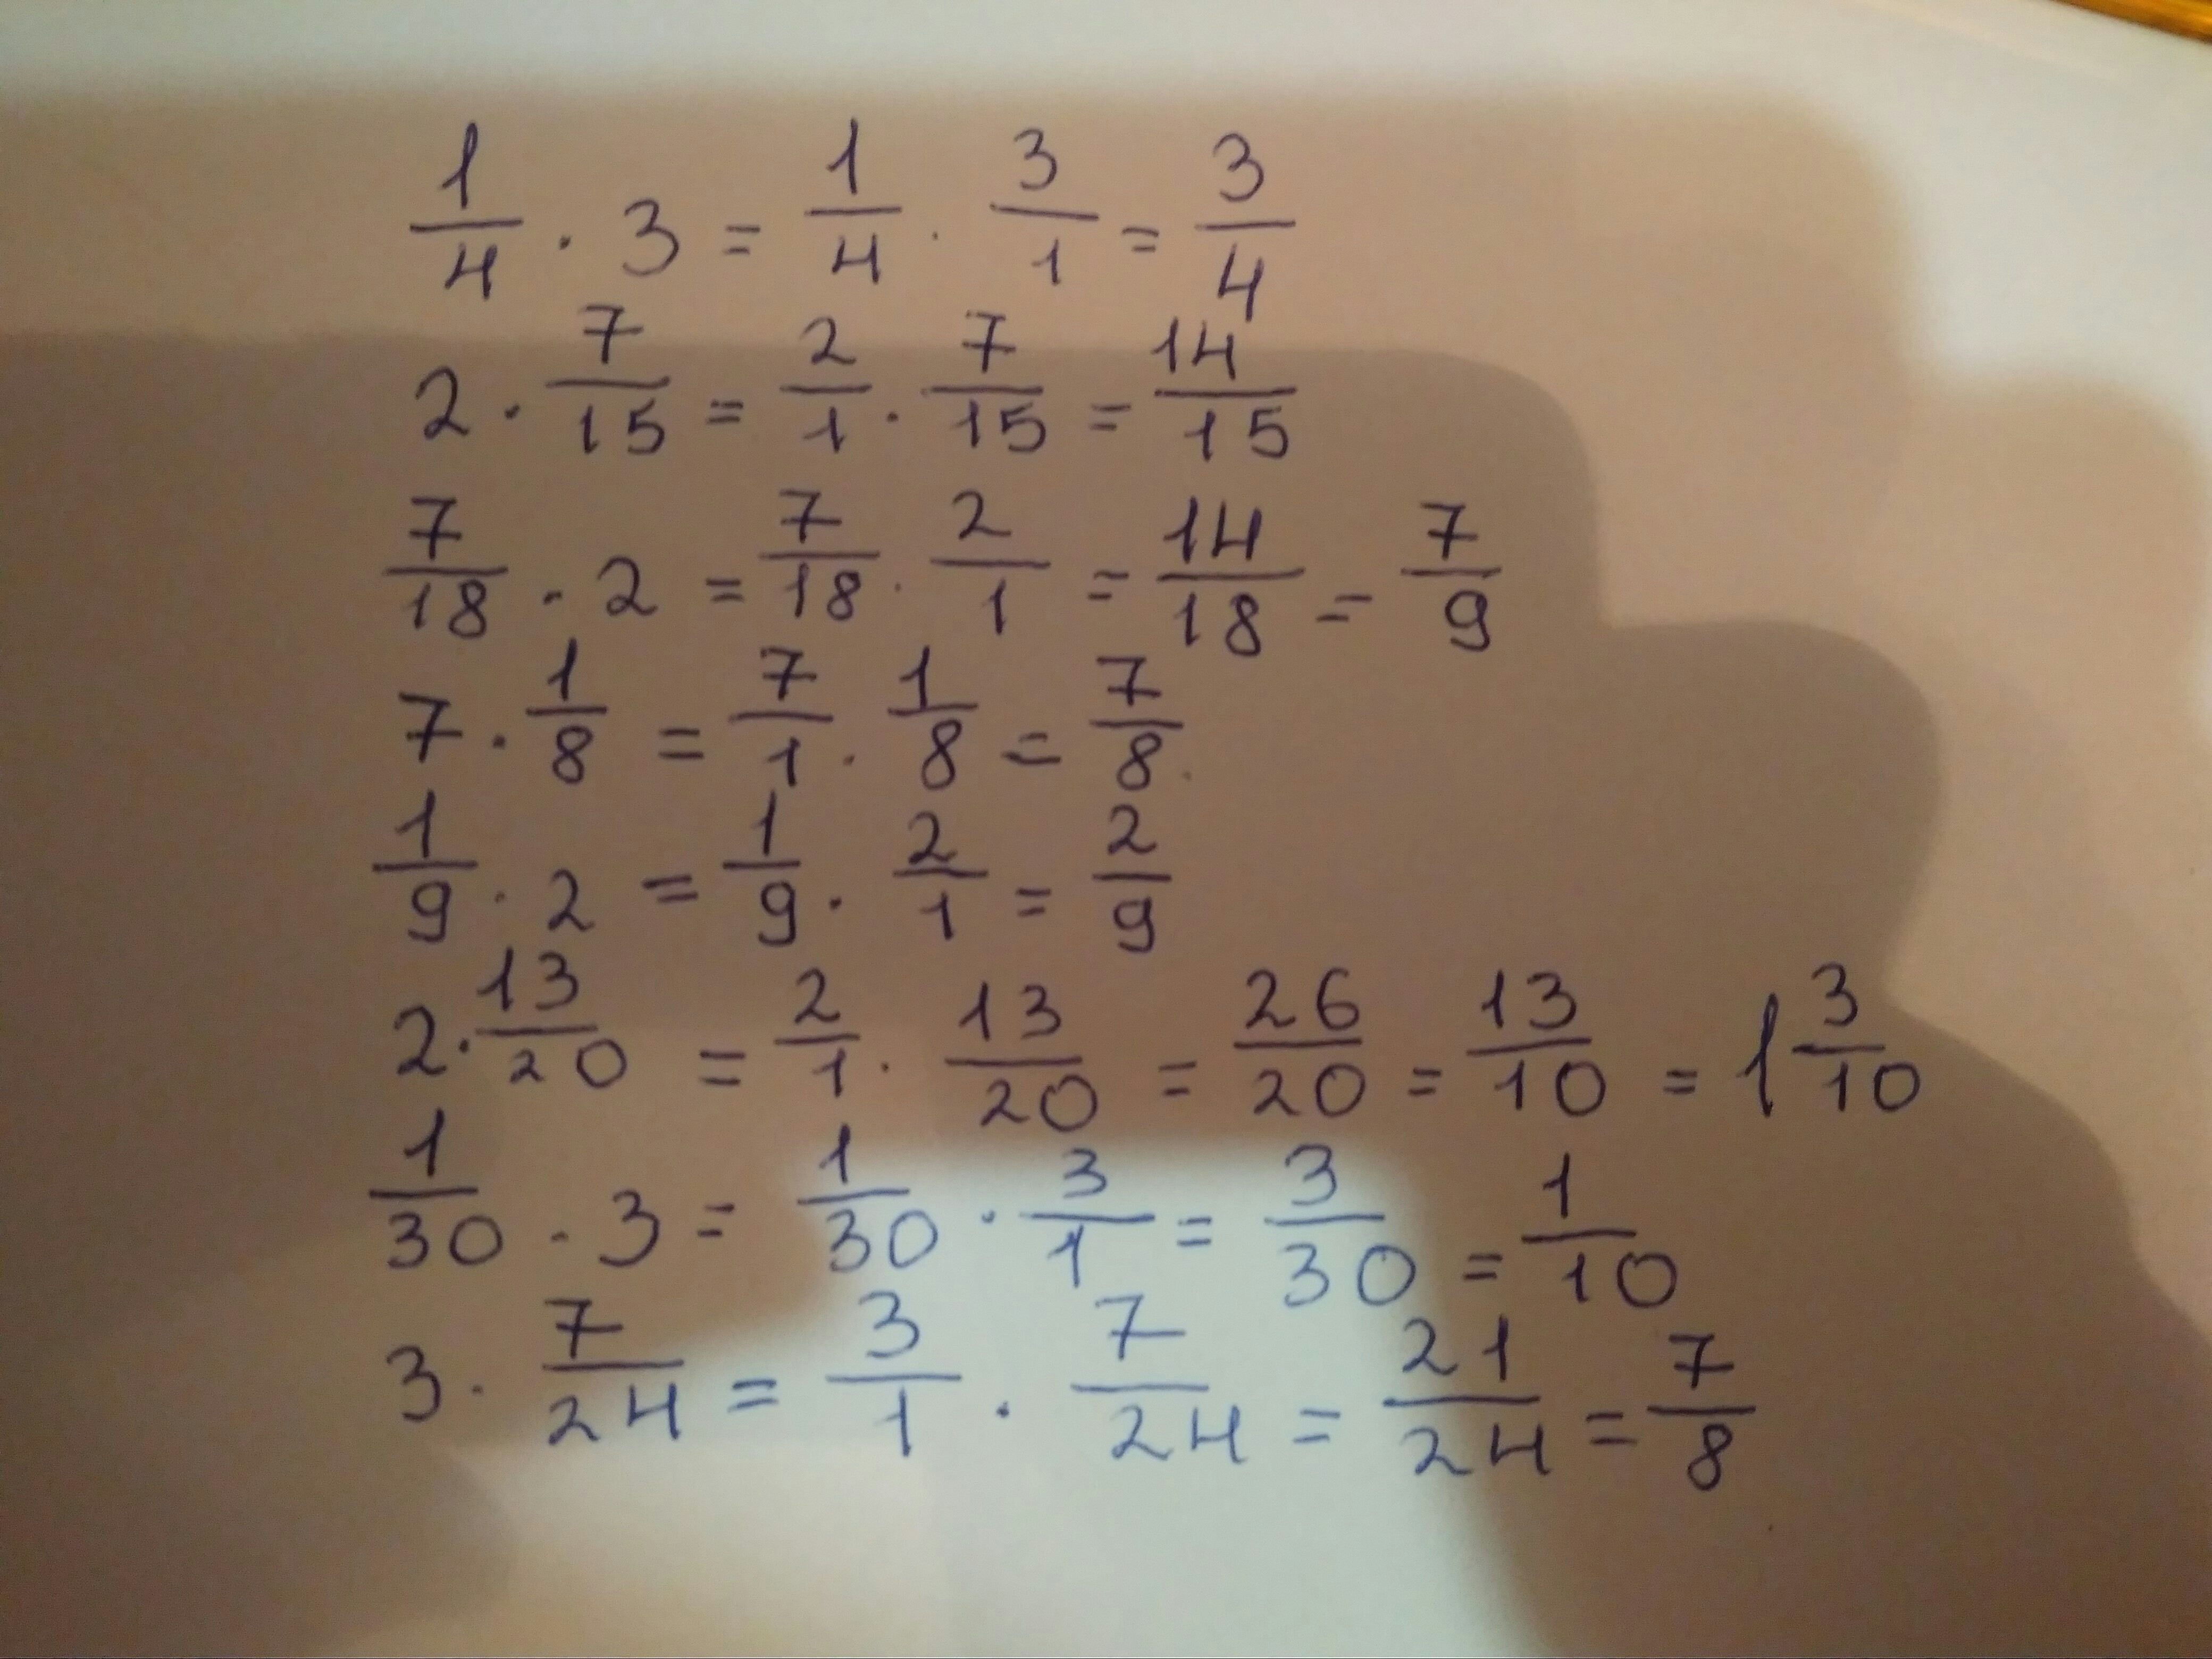 1/4 · 3 = 1/4 · 3/1 = 3/4
2 · 7/15 = 2/1 · 7/15 = 14/15
7/18 · 2 = 7/18 · 2/1 = 14/18 = 7/9
7 · 1/8 = 7/1 · 1/8 = 7/8
1/9 · 2 = 1/9 · 2/1 = 2/9
2 · 13/20 = 2/1 · 13/20 = 26/20 = 13/10 = 1 3/10
1/30 · 3 = 1/30 · 3/1 = 3/30 = 1/10
3 · 7/24 = 3/1 · 7/24 = 21/24 = 7/8